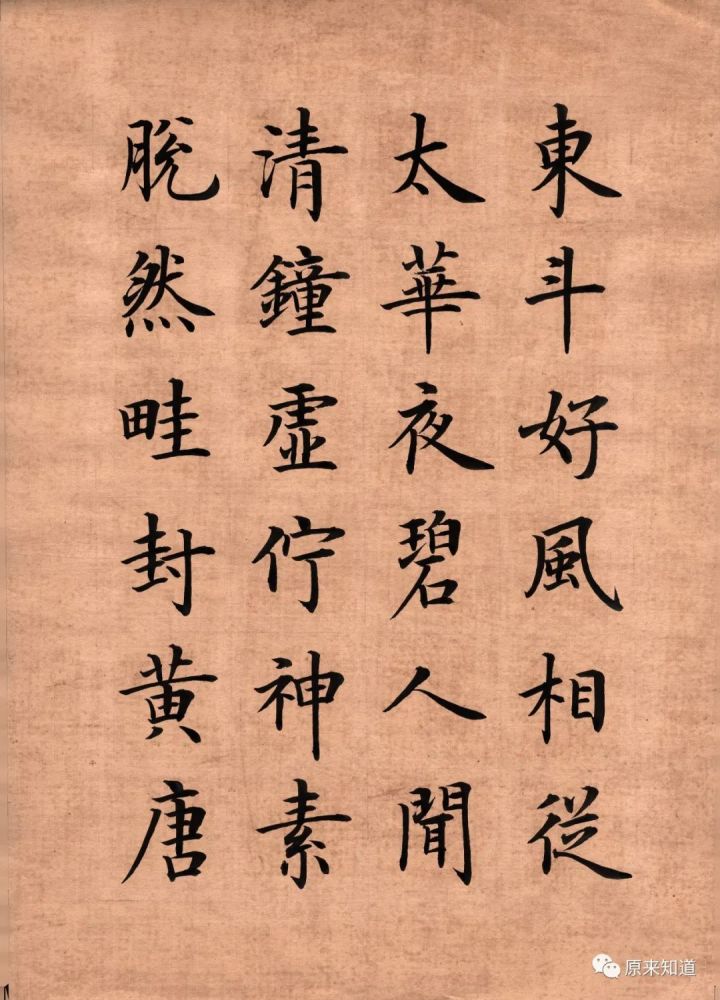 東斗好風相從
太華夜碧人聞
清鐘虛佇神素
脫然畦封黄唐
原来知道